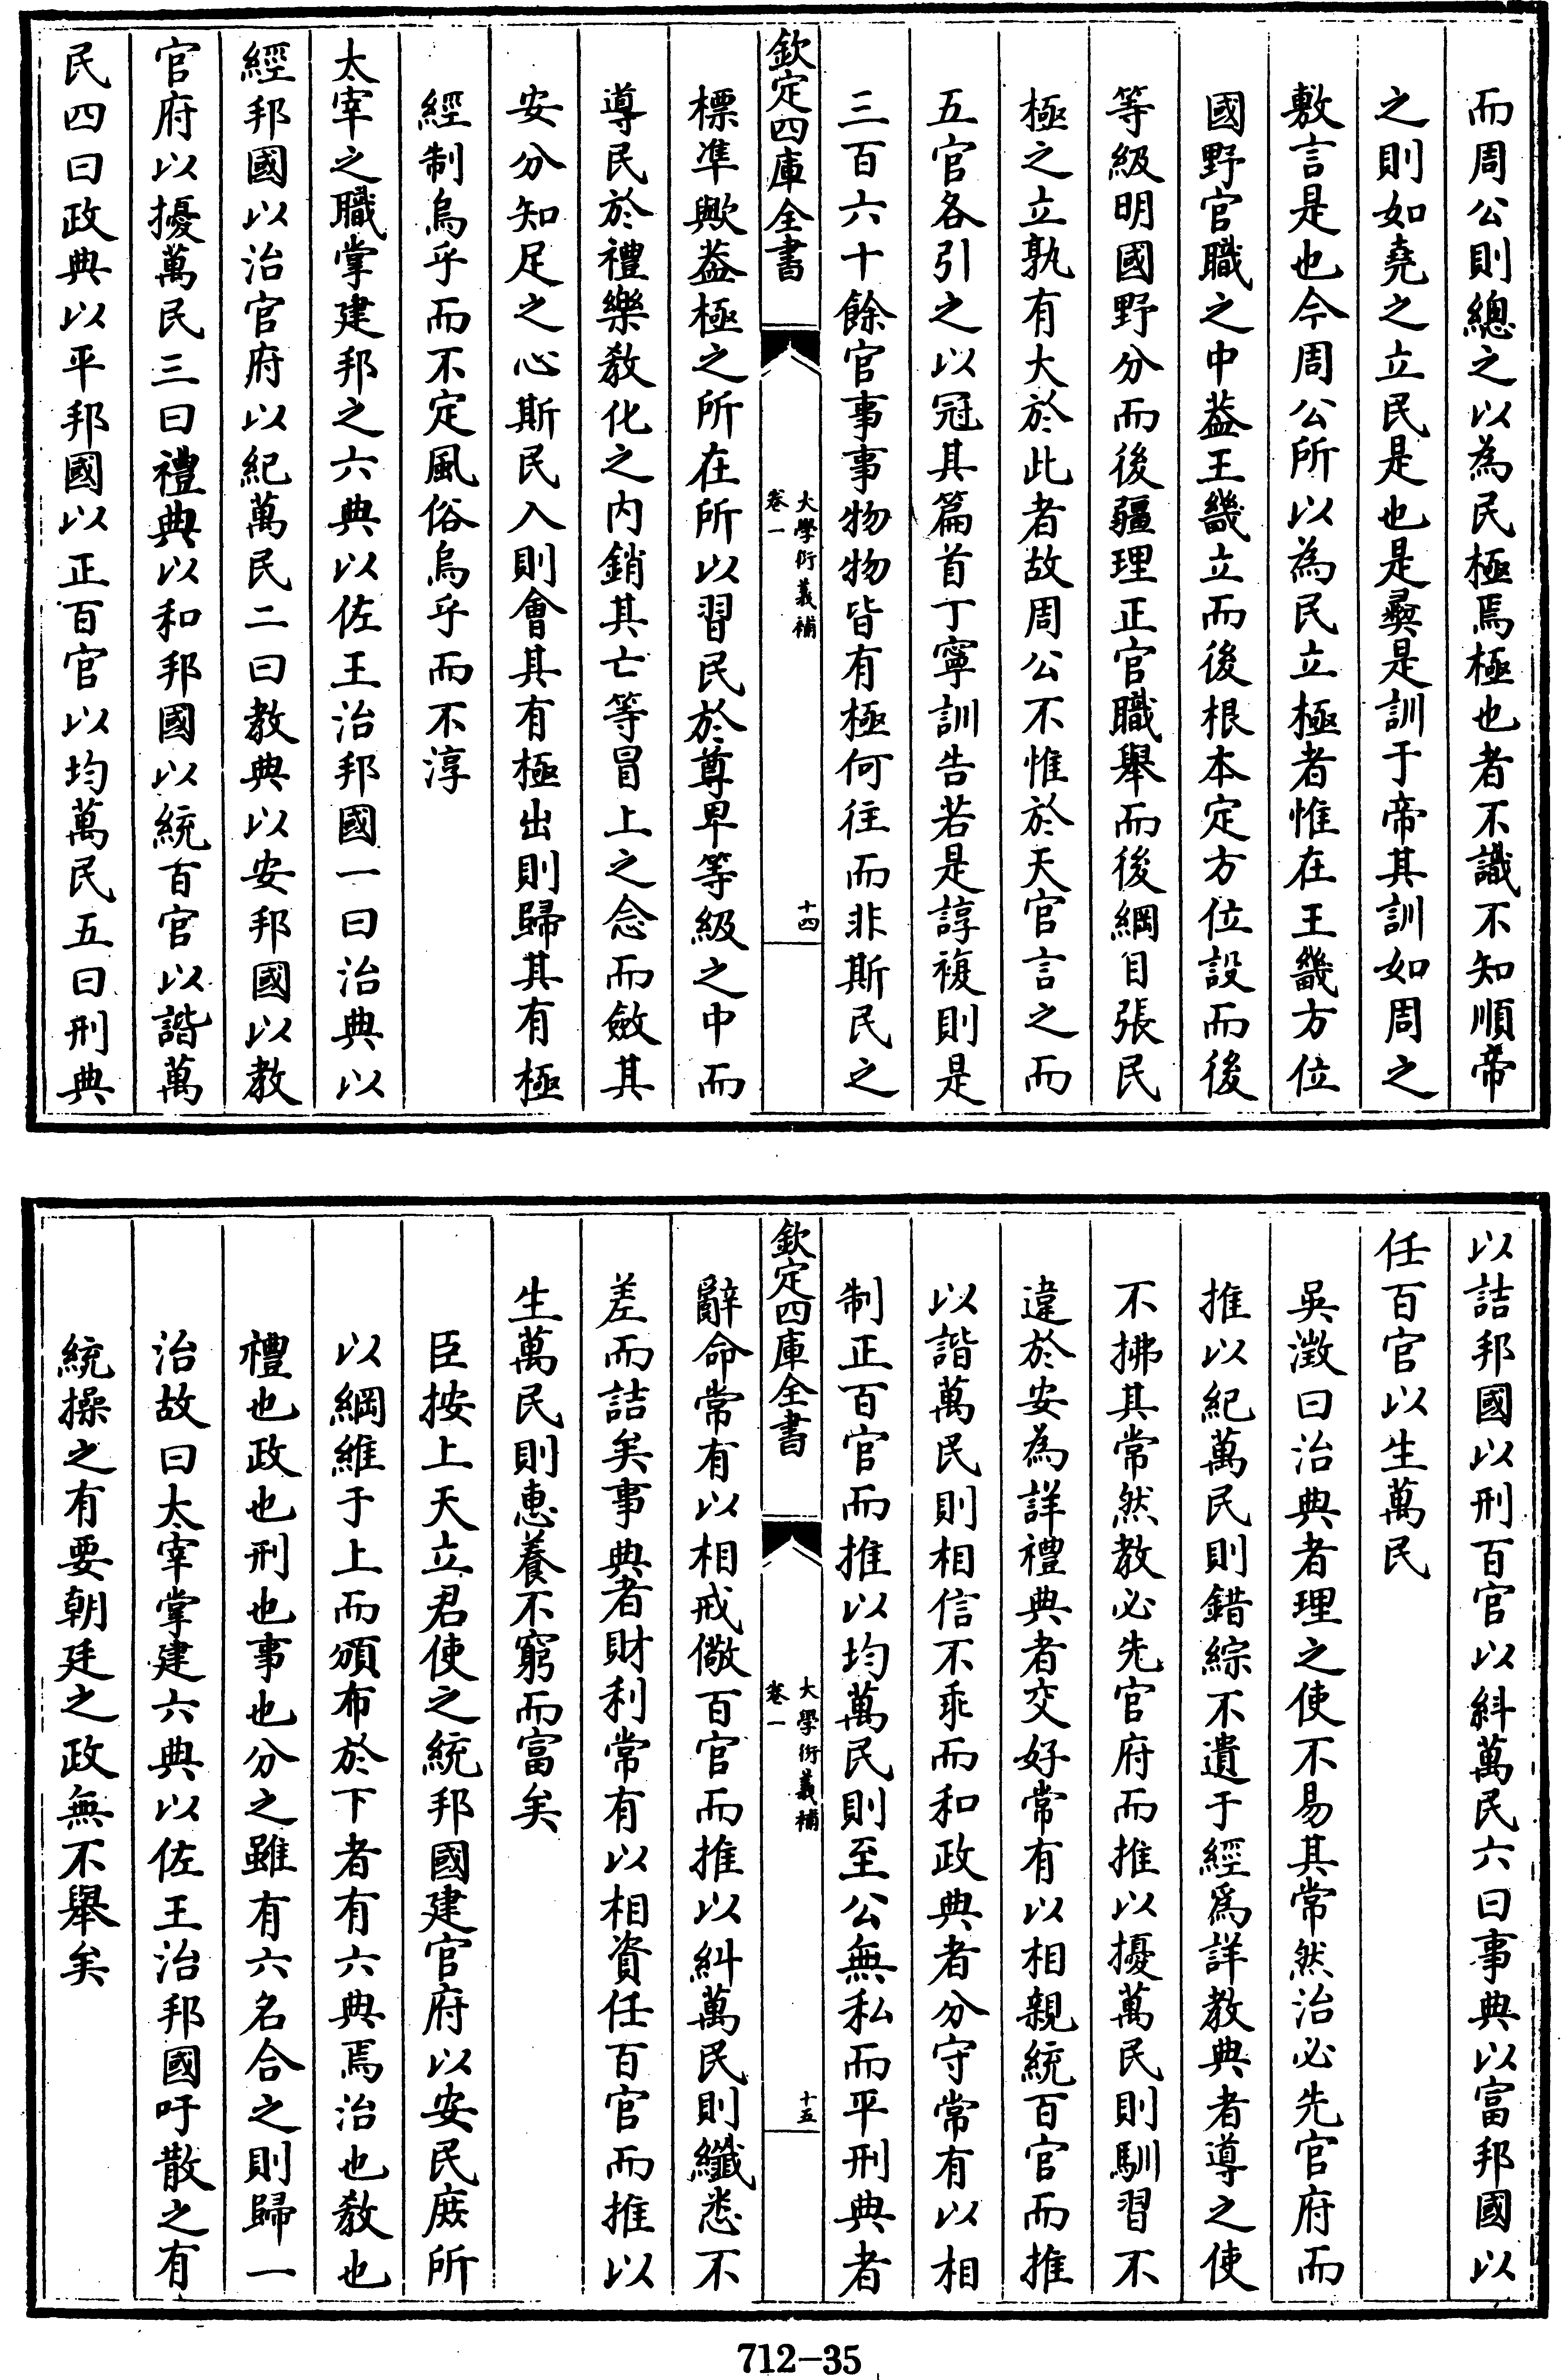 而周公則總之以為民極焉極也者不識不知順帝
之則如堯之立民是也是彞是訓于帝其訓如周之
敷言是也今周公所以為民立極者惟在王畿方位
國野官職之中葢王畿立而後根本定方位設而後
等級明國野分而後疆理正官職舉而後綱目張民
極之立孰有大於此者故周公不惟於天官言之而
五官各引之以冠其篇首丁寧訓告若是諄複則是
三百六十餘官事事物物皆有極何往而非斯民之
欽定四庫全書
大學衍義補
卷一
十四
標準歟葢極之所在所以習民於尊卑等級之中而
導民於禮樂教化之内銷其亡等冒上之念而斂其
安分知足之心斯民入則會其有極出則歸其有極
經制烏乎而不定風俗烏乎而不淳
太宰之職掌建邦之六典以佐王治邦國一曰治典以
經邦國以治官府以紀萬民二曰教典以安邦國以教
官府以擾萬民三曰禮典以和邦國以統百官以諧萬
民四曰政典以平邦國以正百官以均萬民五曰刑典
以詰邦國以刑百官以糾萬民六曰事典以富邦國以
任百官以生萬民
吳澂曰治典者理之使不易其常然治必先官府而
推以紀萬民則錯綜不遺于經爲詳教典者導之使
不拂其常然教必先官府而推以擾萬民則馴習不
違於安為詳禮典者交好常有以相親統百官而推
以諧萬民則相信不乖而和政典者分守常有以相
制正百官而推以均萬民則至公無私而平刑典者
欽定四庫全書
大學衍義補
卷一
十五
辭命常有以相戒儆百官而推以糾萬民則纖悉不
差而詰矣事典者財利常有以相資任百官而推以
生萬民則惠養不窮而富矣
臣按上天立君使之統邦國建官府以安民庶所
以綱維于上而頒布於下者有六典焉治也教也
禮也政也刑也事也分之雖有六名合之則歸一
治故曰太宰掌建六典以佐王治邦國吁散之有
統操之有要朝廷之政無不舉矣
712-35